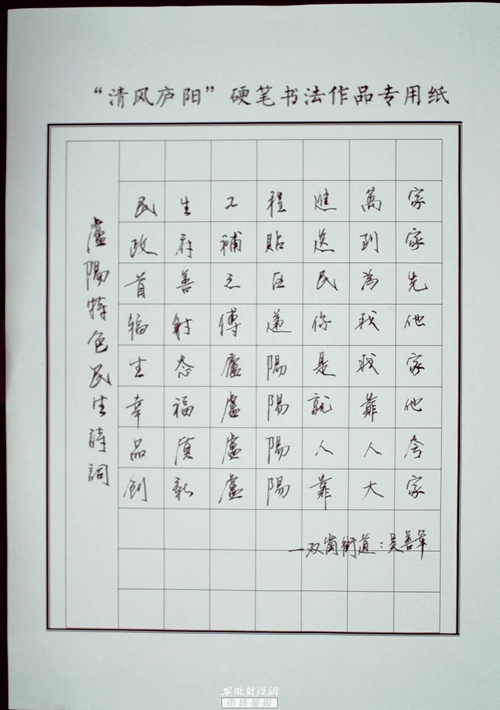 “清风庐阳”硬笔书法作品专用纸
盧陽特色民生詩詞
民生工程進萬家
政府補貼送到家
首善之区民為先
辐射傳遞你我他
生态廬陽是我家
幸福盧陽就靠他
品质盧陽人人夸
创新盧陽靠大家
一双岗街道：吴善军
安徽财经网
市场星报